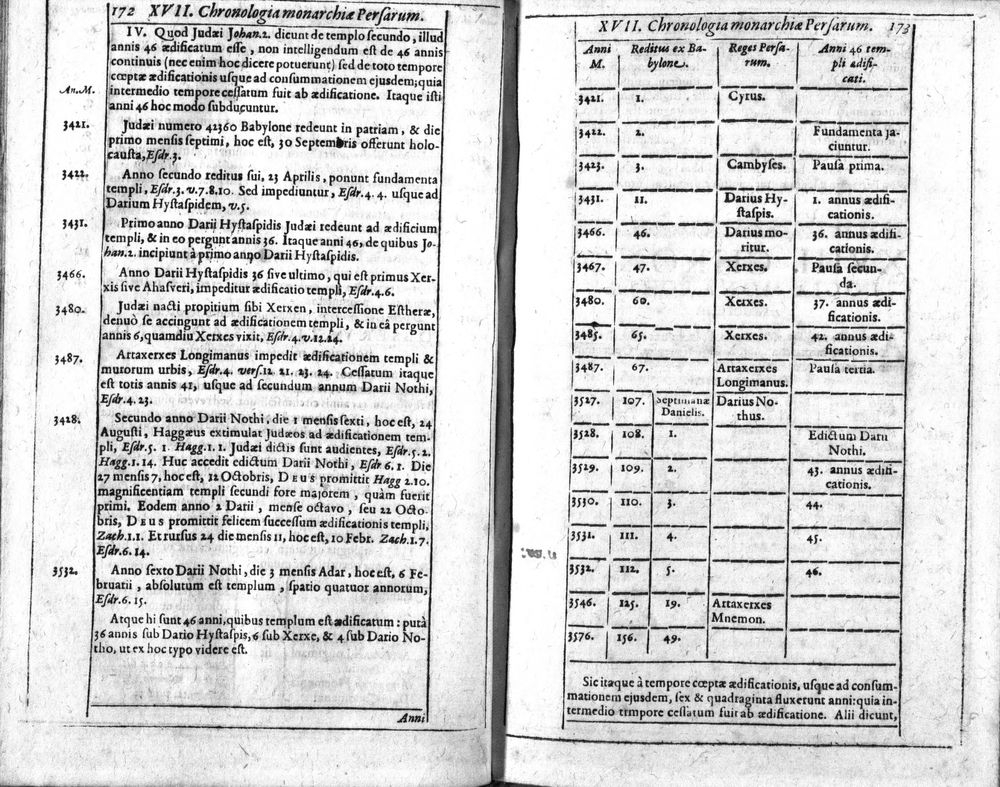 172 XVII. Chronologia monarchiæ Persarum.
IV. Quod Judæi Johan.2. dicunt de templo secundo, illud
annis 46 ædificatum esse, non intelligendum est de 46 annis
continuis (nec enim hoc dicere potuerunt) sed de toto tempore
cœptæ ædificationis usque ad consummationem ejusdem; quia
An.M. intermedio tempore cessatum fuit ab ædificatione. Itaque isti
anni 46 hoc modo subducuntur.
3421. Judæi numero 42360 Babylone redeunt in patriam, & die
primo mensis septimi, hoc est, 30 Septembris offerunt holo-
causta, Esdr.3.
3422. Anno secundo reditus sui, 23 Aprilis, ponunt fundamenta
templi, Esdr.3. v.7.8.10. Sed impediuntur, Esdr.4. 4. usque ad
Darium Hystaspidem, v.5.
3431. Primo anno Darii Hystaspidis Judæi redeunt ad ædificium
templi, & in eo pergunt annis 36. Itaque anni 46, de quibus Jo-
han.2. incipiunt à primo anno Darii Hystaspidis.
3466. Anno Darii Hystaspidis 36 sive ultimo, qui est primus Xer-
xis sive Ahasveri, impeditur ædificatio templi, Esdr.4.6.
3480. Judæi nacti propitium sibi Xerxen, intercessione Estheræ,
denuò se accingunt ad ædificationem templi, & in eâ pergunt
annis 6, quamdiu Xerxes vixit, Esdr.4.v.12.24.
3487. Artaxerxes Longimanus impedit ædificationem templi &
murorum urbis, Esdr.4. vers.12. 21. 23. 24. Cessatum itaque
est totis annis 41, usque ad secundum annum Darii Nothi,
Esdr.4. 23.
3428. Secundo anno Darii Nothi, die 1 mensis sexti, hoc est, 24
Augusti, Haggæus extimulat Judæos ad ædificationem tem-
pli, Esdr.5. 1 Hagg.1.1. Judæi dictis sunt audientes, Esdr.5.2.
Hagg.1.14. Huc accedit edictum Darii Nothi, Esdr 6.1. Die
27 mensis 7, hoc est, 12 Octobris, DEUS promittit Hagg 2.10.
magnificentiam templi secundi fore majorem, quàm fuerit
primi. Eodem anno 2 Darii, mense octavo, seu 22 Octo-
bris, DEUS promittit felicem successum ædificationis templi,
Zach.1.1. Et rursus 24 die mensis 11, hoc est, 10 Febr. Zach.1.7.
Esdr.6.14.
3532. Anno sexto Darii Nothi, die 3 mensis Adar, hoc est, 6 Fe-
bruarii, absolutum est templum, spatio quatuor annorum,
Esdr.6.15.
Atque hi sunt 46 anni, quibus templum est ædificatum: putà
36 annis sub Dario Hystaspis, 6 sub Xerxe, & 4 sub Dario No-
tho, ut ex hoc typo videre est.
Anni
XVII. Chronologia monarchiæ Persarum. 173
Anni Reditus ex Ba- Reges Persa- Anni 46 tem-
M. bylone. rum. pli ædifi-
cati.
3421. 1. Cyrus.
3422. 2. Fundamenta ja-
ciuntur.
3423. 3. Cambyses. Pausa prima.
3431. 11. Darius Hy- 1. annus ædifi-
staspis. cationis.
3466. 46. Darius mo- 36. annus ædifi-
ritur. cationis.
3467. 47. Xerxes. Pausa secun-
da.
3480. 60. Xerxes. 37. annus ædi-
ficationis.
3485. 65. Xerxes. 42. annus ædi-
ficationis.
3487. 67. Artaxerxes Pausa tertia.
Longimanus.
3527. 107. Septimanæ Darius No-
Danielis. thus.
3528. 108. 1. Edictum Darii
Nothi.
3529. 109. 2. 43. annus ædifi-
cationis.
3530. 110. 3. 44.
3531. 111. 4. 45.
3532. 112. 5. 46.
3546. 125. 19. Artaxerxes
Mnemon.
3576. 156. 49.
Sic itaque à tempore cœptæ ædificationis, usque ad consum-
mationem ejusdem, sex & quadraginta fluxerunt anni: quia in-
termedio trmpore cessatum fuit ab ædificatione. Alii dicunt,